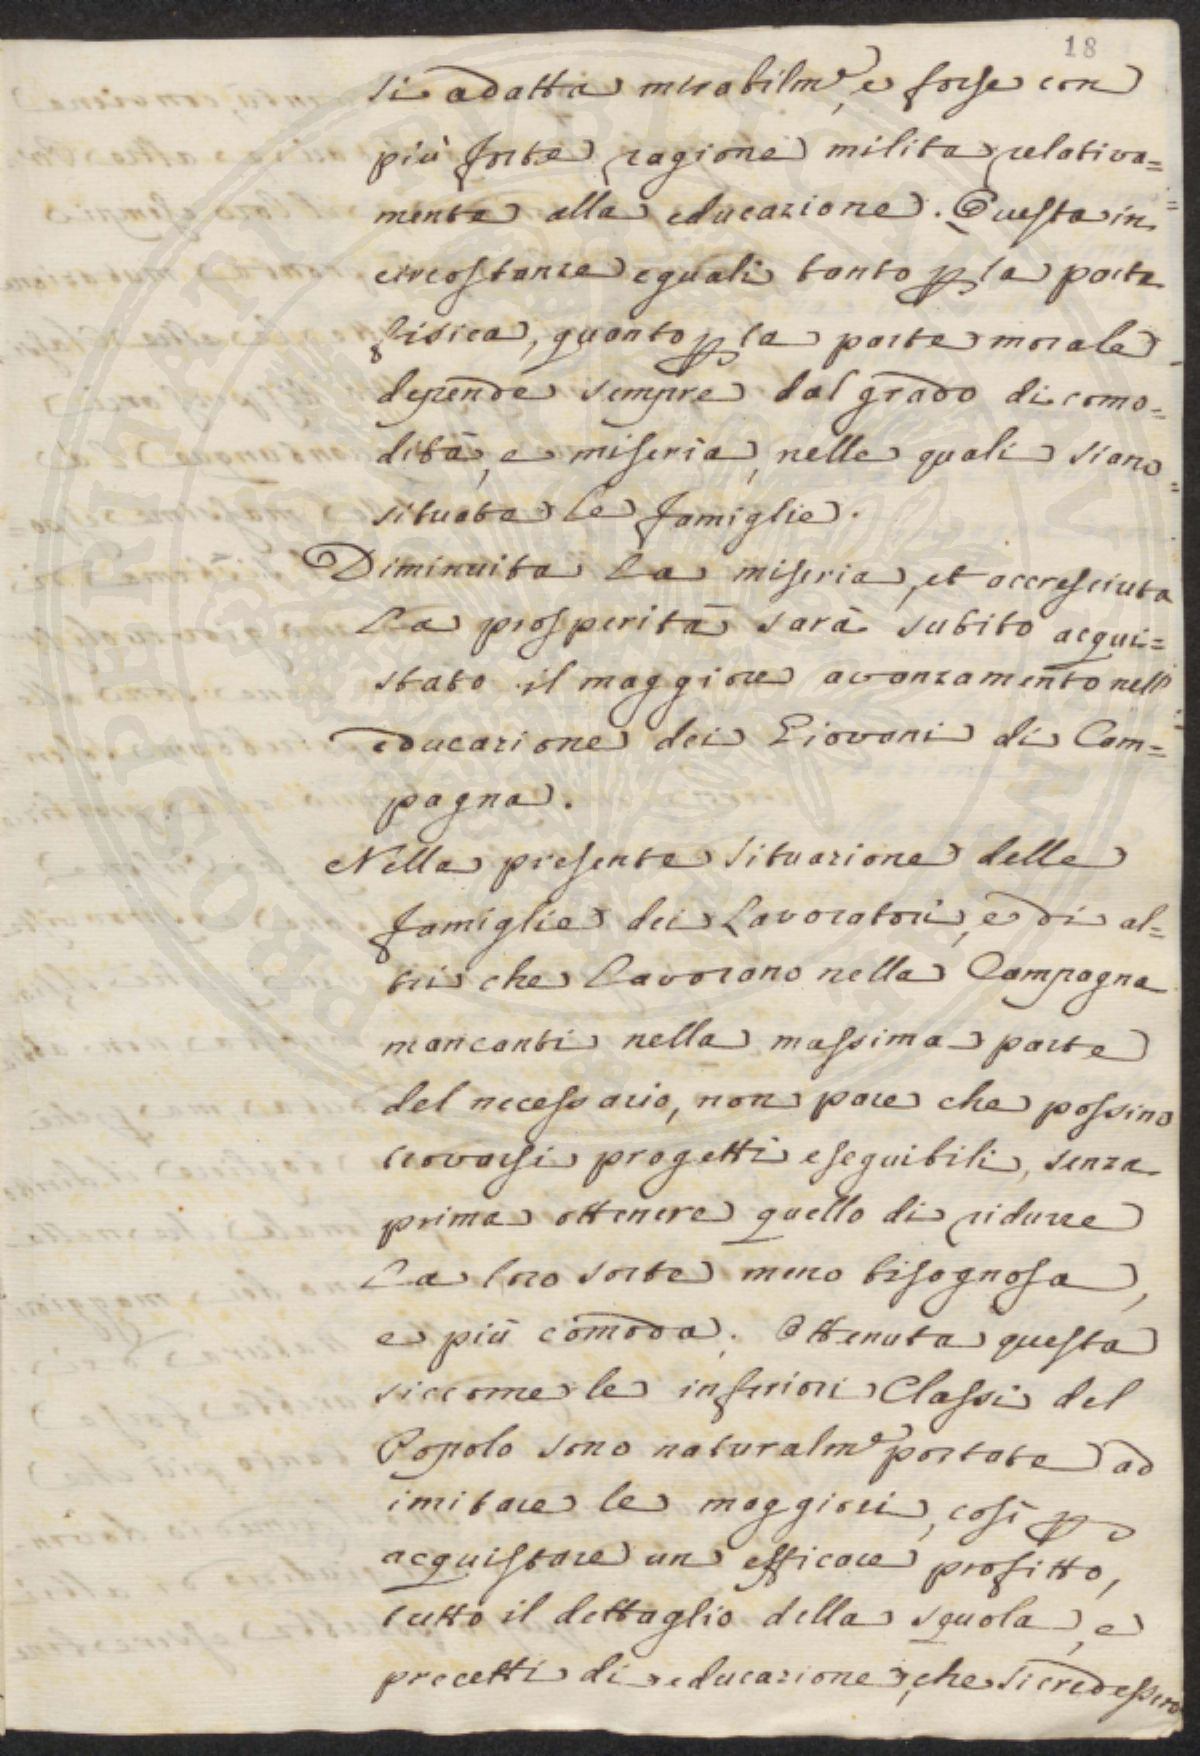 18
si adatta mirabilm.e, e forse con
più forte ragione milita relativa=
mente alla educazione. Questa in
circostanze eguali tanto p la parte
fisica, quanto p la parte morale
depende sempre dal grado di como=
dità, e miseria, nelle quali siano
situate le famiglie.
Diminuita la miseria, et accresciuta
la prosperità sarà subito acqui=
stato il maggiore avanzamento nell'
educazione dei Giovani di Cam=
pagna.
Nella presente situazione delle
famiglie dei Lavoratori, e di al=
tri che lavorano nella Campagna
mancanti nella massima parte
del necessario, non pare che possino
trovarsi progetti eseguibili, senza
prima ottenere quello di ridurre
la loro sorte meno bisognosa,
e più comoda. Ottenuta questa
siccome le inferiori Classi del
Popolo sono naturalm.e portate ad
imitare le maggiori, così p
acquistare un efficace profitto,
tutto il dettaglio della squola, e
precetti di educazione, che si credessero
PROSPERITATI PUBLICAE